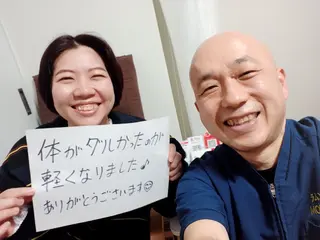 体がダルかったのが
軽くなりました♪
ありがとうございます☺